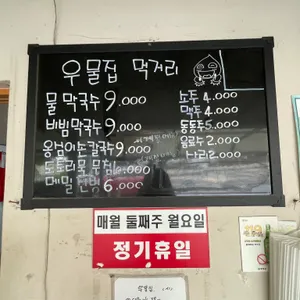 우물집 먹거리
물 막국수 9.000
비빔막국수 9.000
옹심이손칼국수 9.000
도토리묵무침
메밀전병 6.000
소주 4.000
맥주 4.000
동동주 5.000
음료수 2.000
사리 2.000
매월 둘째주 월요일
정기휴일